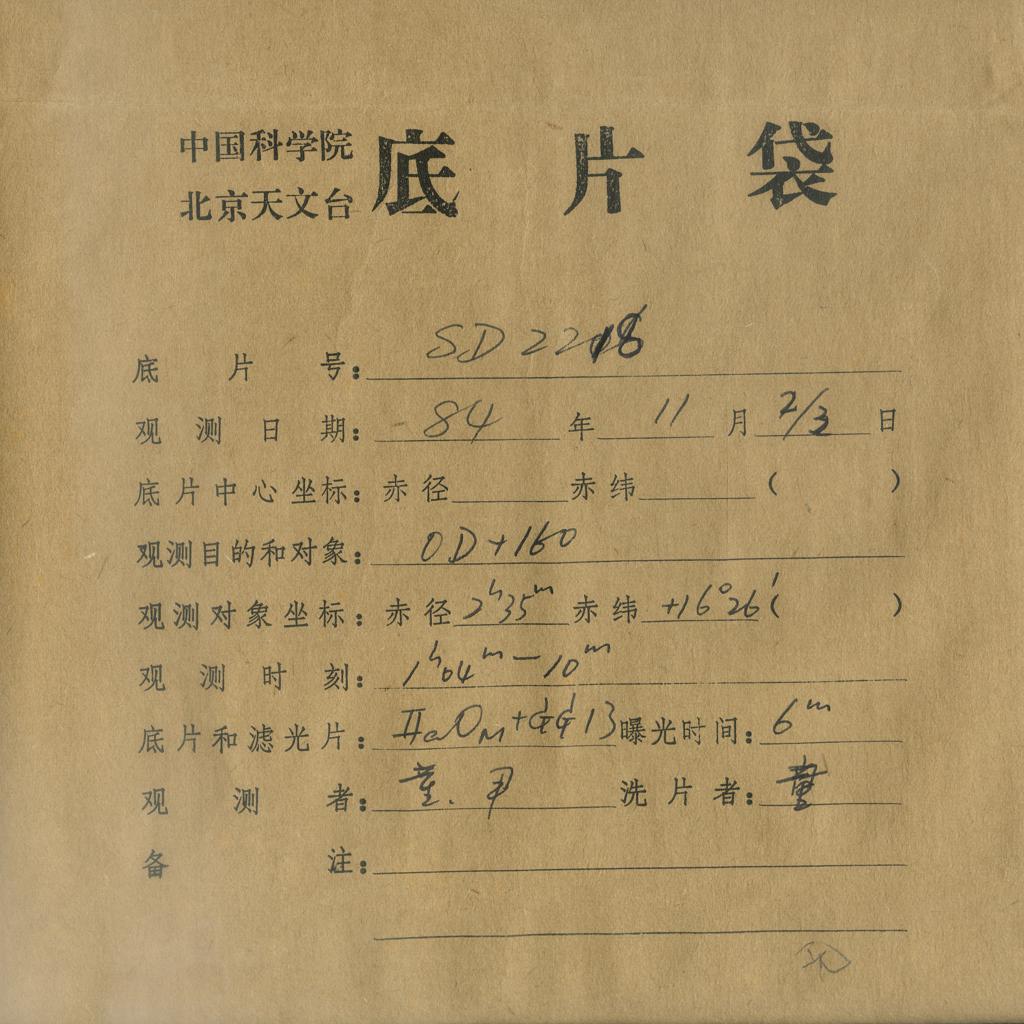 中国科学院
北京天文台
底片袋
底片号: SD 2218
观测日期: 84 年 11 月 2/3 日
底片中心坐标: 赤径 赤纬 ( )
观测目的和对象: OD+160
观测对象坐标: 赤径 2ʰ35ᵐ 赤纬 +16°26′ ( )
观测时刻: 1ʰ04ᵐ—10ᵐ
底片和滤光片: ⅡaOM+GG13 曝光时间: 6ᵐ
观测者: 董. 尹 洗片者: 董
备注: